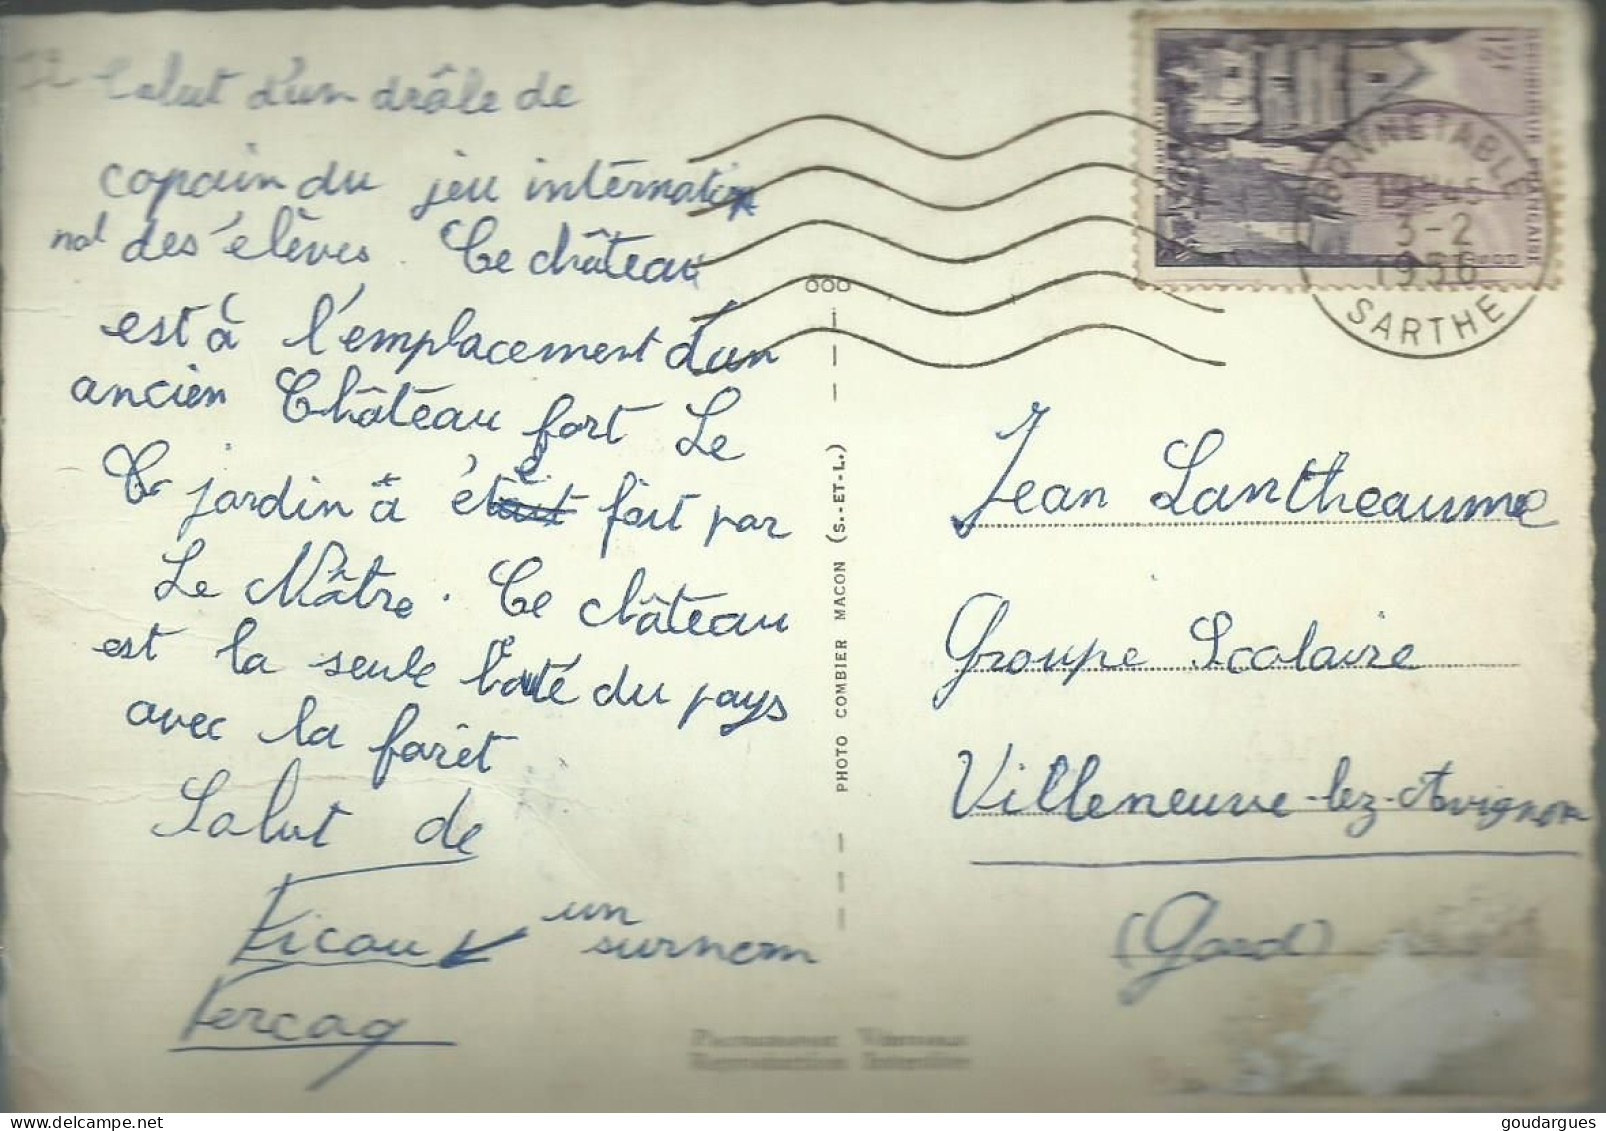 72 Salut d'un drôle de
copain du jeu internation
nal des élèves. Ce château
est à l'emplacement d'un
ancien Château fort Le
Ce jardin à été fait par
Le Nôtre. Ce château
est la seule bauté du pays
avec la forêt
Salut de
Ficou un
surnom
Fercoq
PHOTO COMBIER MACON (S.-ET-L.)
REPUBLIQUE FRANÇAISE
12F
BONNETABLE
3-2
1956
SARTHE
Jean Lantheaume
Groupe Scolaire
Villeneuve-lez-Avignon
(Gard)
Photographie Véritable
Reproduction Interdite
goudargues.com